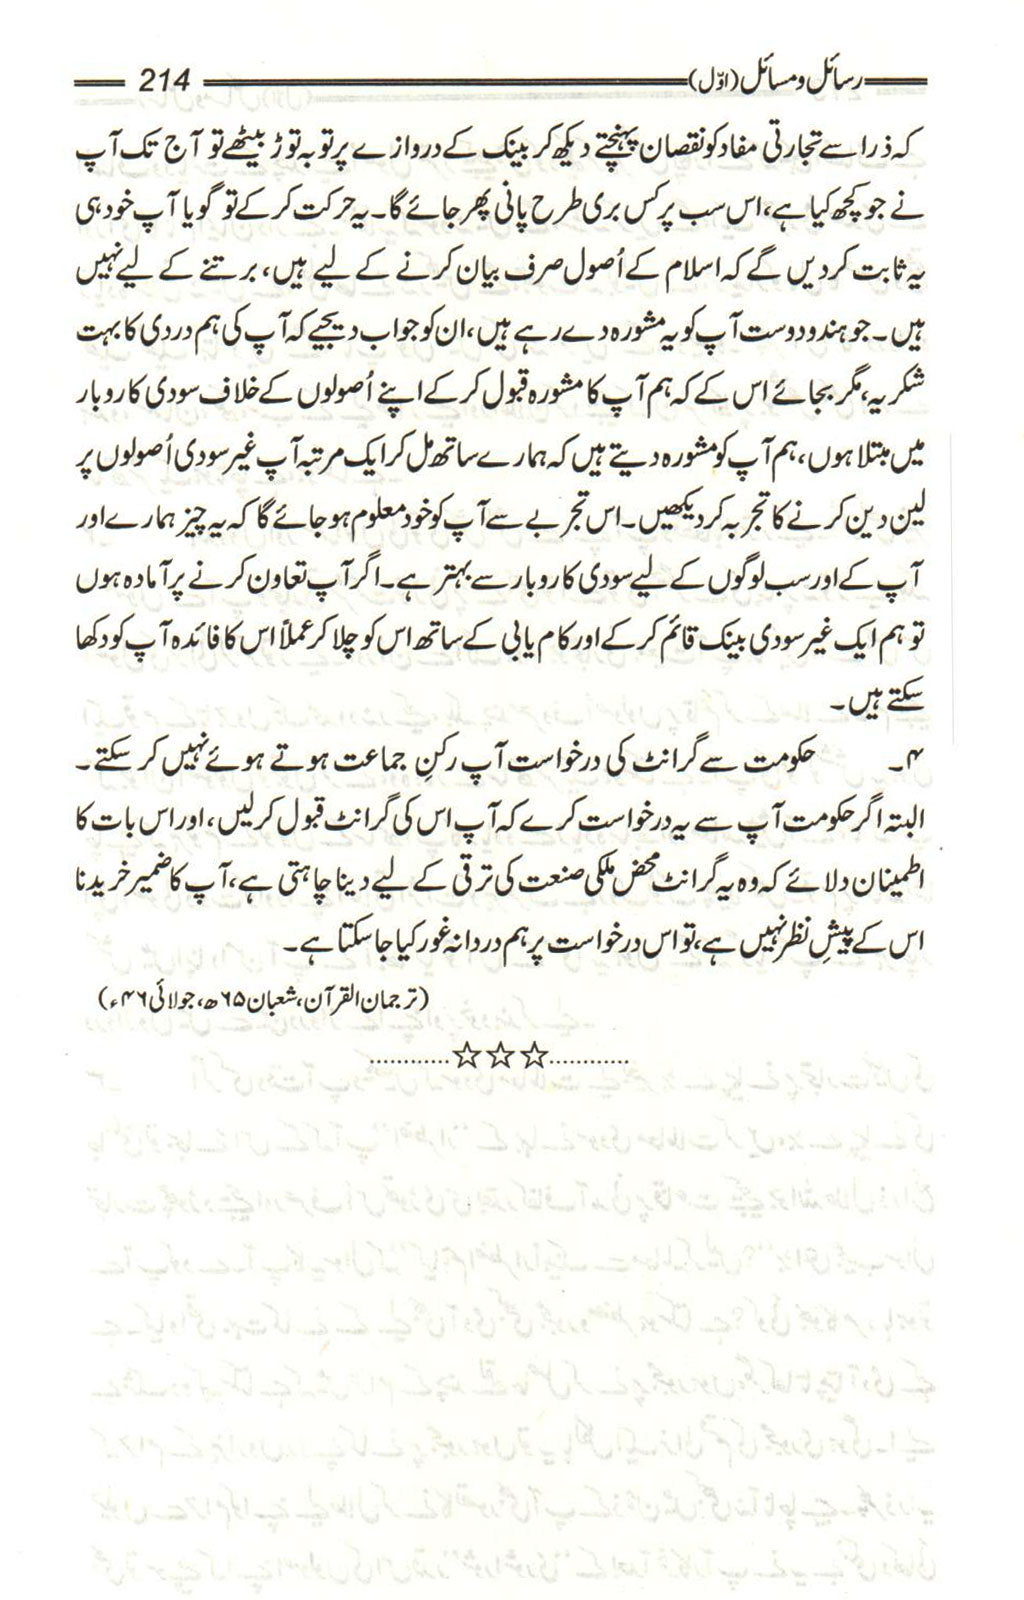 رسائل و مسائل (اوّل) 214
کہ ذرا سے تجارتی مفاد کو نقصان پہنچتے دیکھ کر بینک کے دروازے پر توبہ توڑ بیٹھے تو آج تک آپ
نے جو کچھ کیا ہے، اس سب پر کس بری طرح پانی پھر جائے گا۔ یہ حرکت کر کے تو گویا آپ خود ہی
یہ ثابت کر دیں گے کہ اسلام کے اُصول صرف بیان کرنے کے لیے ہیں، برتنے کے لیے نہیں
ہیں۔ جو ہندو دوست آپ کو یہ مشورہ دے رہے ہیں، ان کو جواب دیجیے کہ آپ کی ہم دردی کا بہت
شکریہ، مگر بجائے اس کے کہ ہم آپ کا مشورہ قبول کر کے اپنے اُصولوں کے خلاف سودی کاروبار
میں مبتلا ہوں، ہم آپ کو مشورہ دیتے ہیں کہ ہمارے ساتھ مل کر ایک مرتبہ آپ غیر سودی اُصولوں پر
لین دین کرنے کا تجربہ کر دیکھیں۔ اس تجربے سے آپ کو خود معلوم ہو جائے گا کہ یہ چیز ہمارے اور
آپ کے اور سب لوگوں کے لیے سودی کاروبار سے بہتر ہے۔ اگر آپ تعاون کرنے پر آمادہ ہوں
تو ہم ایک غیر سودی بینک قائم کر کے اور کام یابی کے ساتھ اس کو چلا کر عملاً اس کا فائدہ آپ کو دکھا
سکتے ہیں۔
۴۔ حکومت سے گرانٹ کی درخواست آپ رکنِ جماعت ہوتے ہوئے نہیں کر سکتے۔
البتہ اگر حکومت آپ سے یہ درخواست کرے کہ آپ اس کی گرانٹ قبول کر لیں، اور اس بات کا
اطمینان دلائے کہ وہ یہ گرانٹ محض ملکی صنعت کی ترقی کے لیے دینا چاہتی ہے، آپ کا ضمیر خریدنا
اس کے پیشِ نظر نہیں ہے، تو اس درخواست پر ہم دردانہ غور کیا جا سکتا ہے۔
(ترجمان القرآن، شعبان ۶۵ھ، جولائی ۴۶ء)
...........☆☆☆...........